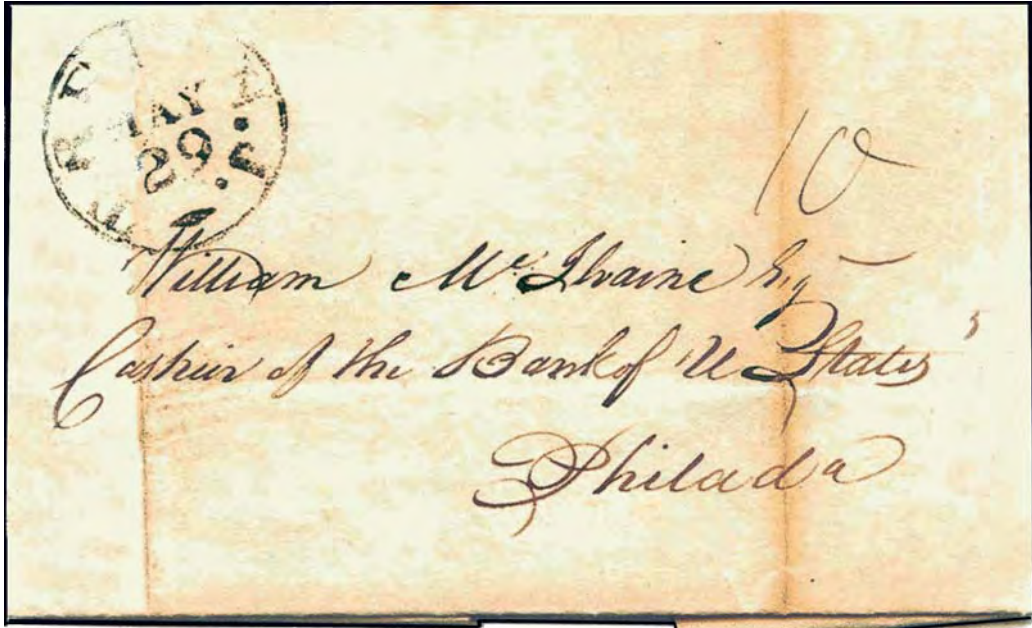 MAY
29
N.J.
10
William McIlvaine Esq
Cashier of the Bank of U States
5
Philada